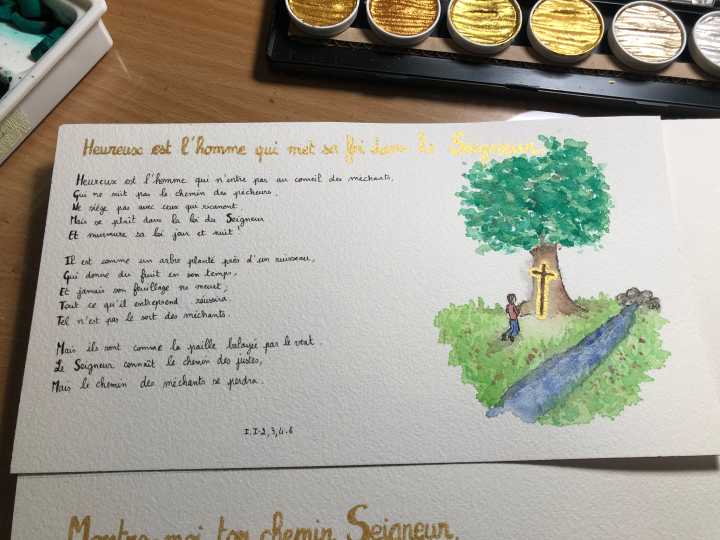 Heureux est l'homme qui met sa foi dans le Seigneur.
Heureux est l'homme qui n'entre pas au conseil des méchants,
Qui ne suit pas le chemin des pécheurs,
Ne siège pas avec ceux qui ricanent,
Mais se plaît dans la loi du Seigneur
Et murmure sa loi jour et nuit !
Il est comme un arbre planté près d'un ruisseau,
Qui donne du fruit en son temps,
Et jamais son feuillage ne meurt ;
Tout ce qu'il entreprend réussira.
Tel n'est pas le sort des méchants.
Mais ils sont comme la paille balayée par le vent.
Le Seigneur connaît le chemin des justes,
Mais le chemin des méchants se perdra.
I.I-2,3,4-6
Montre-moi ton chemin Seigneur.